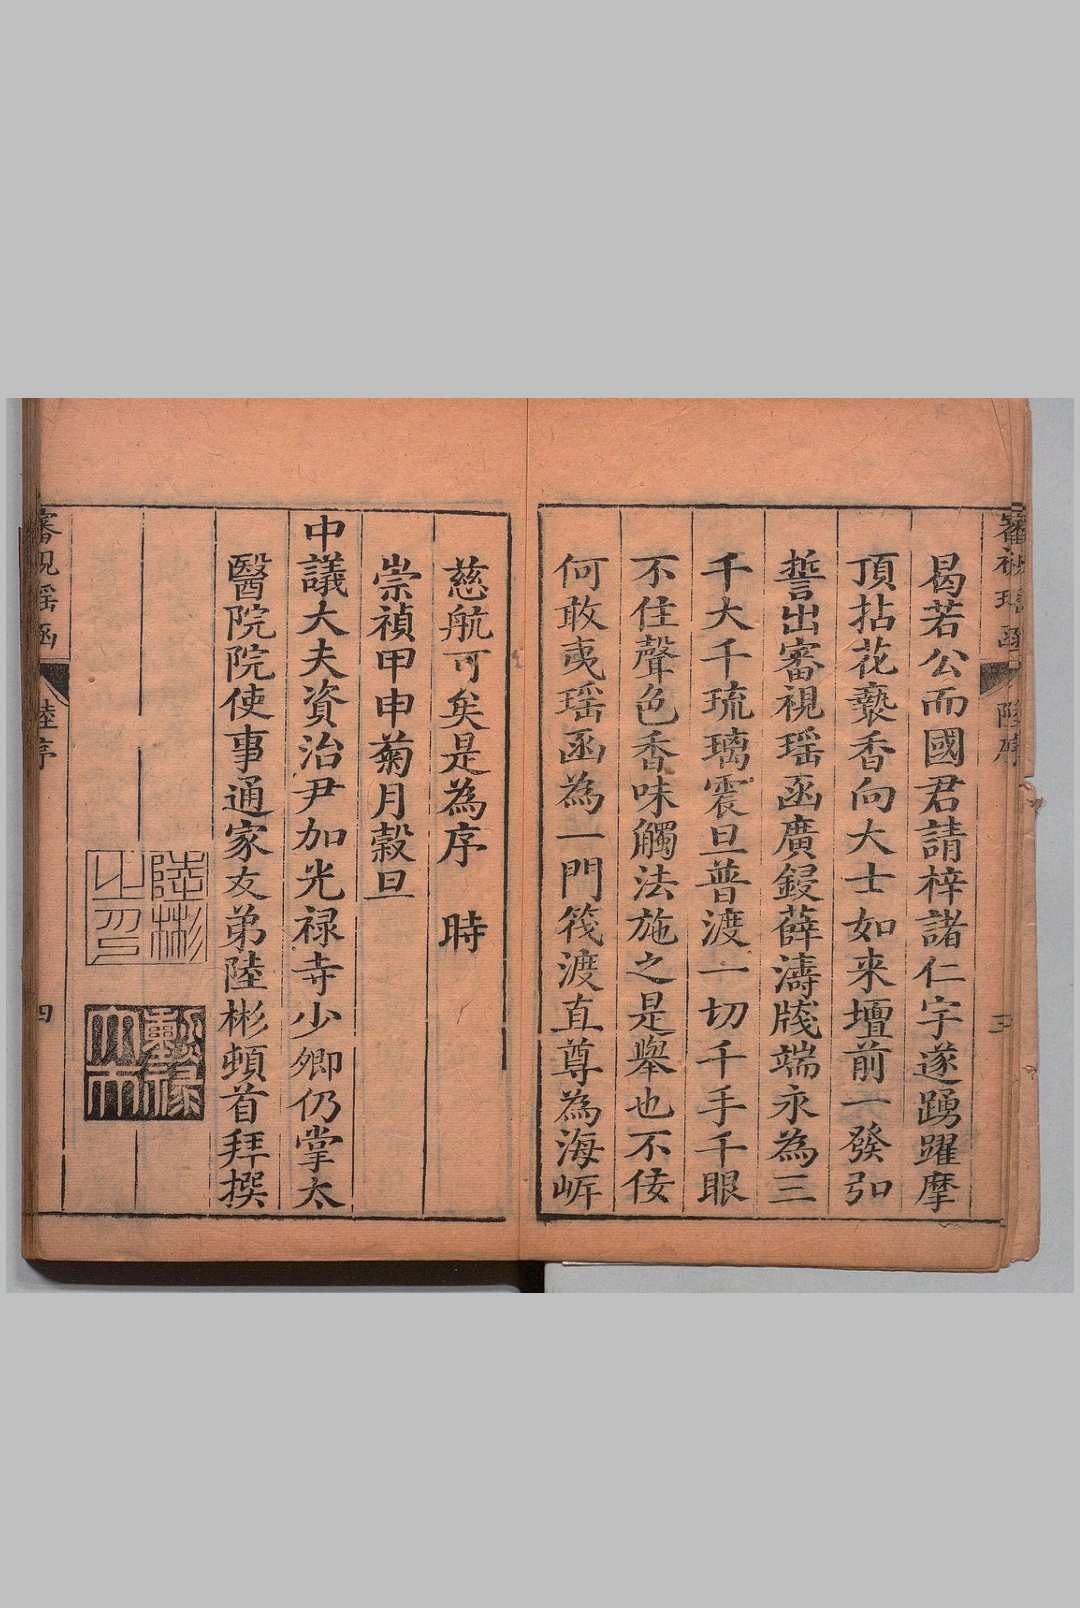 審視瑤函
陸序
三
曷若公而國君請梓諸仁宇遂踴躍摩
頂拈花褻香向大士如來壇前一發弘
誓出審視瑤函廣鋟薛濤牋端永為三
千大千琉璃震旦普渡一切千手千眼
不住聲色香味觸法施之是舉也不佞
何敢夷瑤函為一門筏渡直尊為海岸
慈航可矣是為序 時
崇禎甲申菊月穀旦
中議大夫資治尹加光禄寺少卿仍掌太
醫院院使事通家友弟陸彬頓首拜撰
陸彬之印
審視瑤函
陸序
四